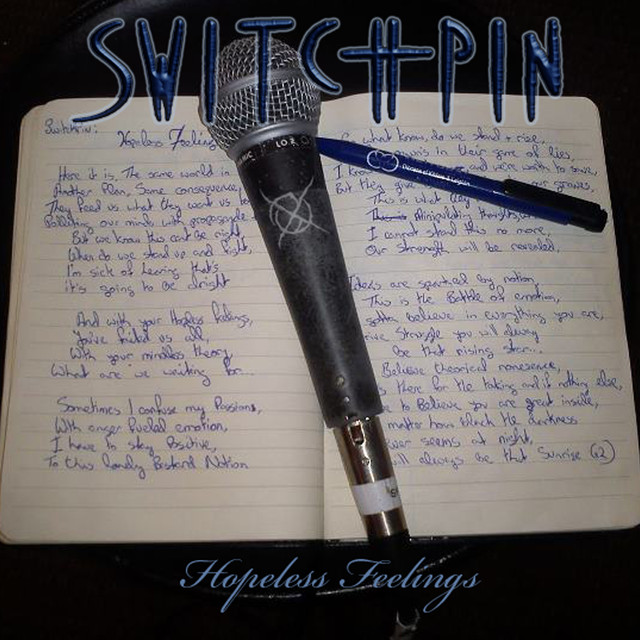 SWITCHPIN
Switchpin:
Hopeless Feelings
Here it is, The same world in
Another Plan, Same consequence,
They feed us what they want us to
Polluting our minds with propaganda
But we know this cant be right,
When do we stand up and fight,
I'm sick of hearing that's
it's going to be alright
And with your Hopless feelings,
You've failed us all,
With your mindless theory
What are we waiting for...
Sometimes I confuse my Passions,
With anger fueled emotion,
I have to stay Positive,
To this lonely Bastard Nation
what know, do we stand & rise,
in their game of lies,
I know and we're with to serve,
But they give our graves,
This is what they
Manipulating thoughts
I cannot stand this no more,
Our Strength will be revealed,
Ideas are sparked by notion,
This is the Battle of emotion,
gotta believe in everything you are,
Struggle you will always
be that rising star...
Believe theoretical nonesense,
is there for the taking and if nothing else,
to Believe you are great inside,
matter how black the darkness
ever seems at night,
will always be that Sunrise (x2)
LO Z
Hopeless Feelings